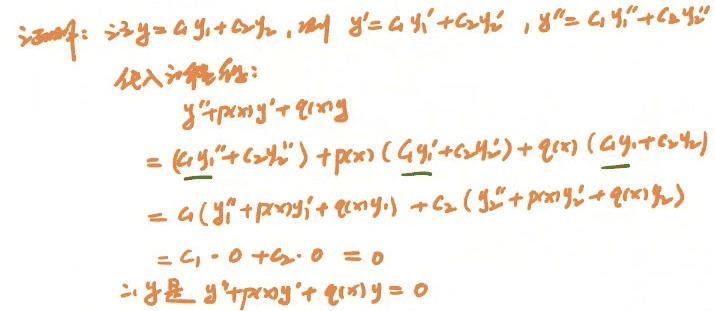 证明：设y=c₁y₁+c₂y₂，则 y'=c₁y₁'+c₂y₂'，y''=c₁y₁''+c₂y₂''
代入方程：
y''+p(x)y'+q(x)y
=(c₁y₁''+c₂y₂'')+p(x)(c₁y₁'+c₂y₂')+q(x)(c₁y₁+c₂y₂)
=c₁(y₁''+p(x)y₁'+q(x)y₁)+c₂(y₂''+p(x)y₂'+q(x)y₂)
=c₁·0+c₂·0=0
∴y是 y''+p(x)y'+q(x)y=0